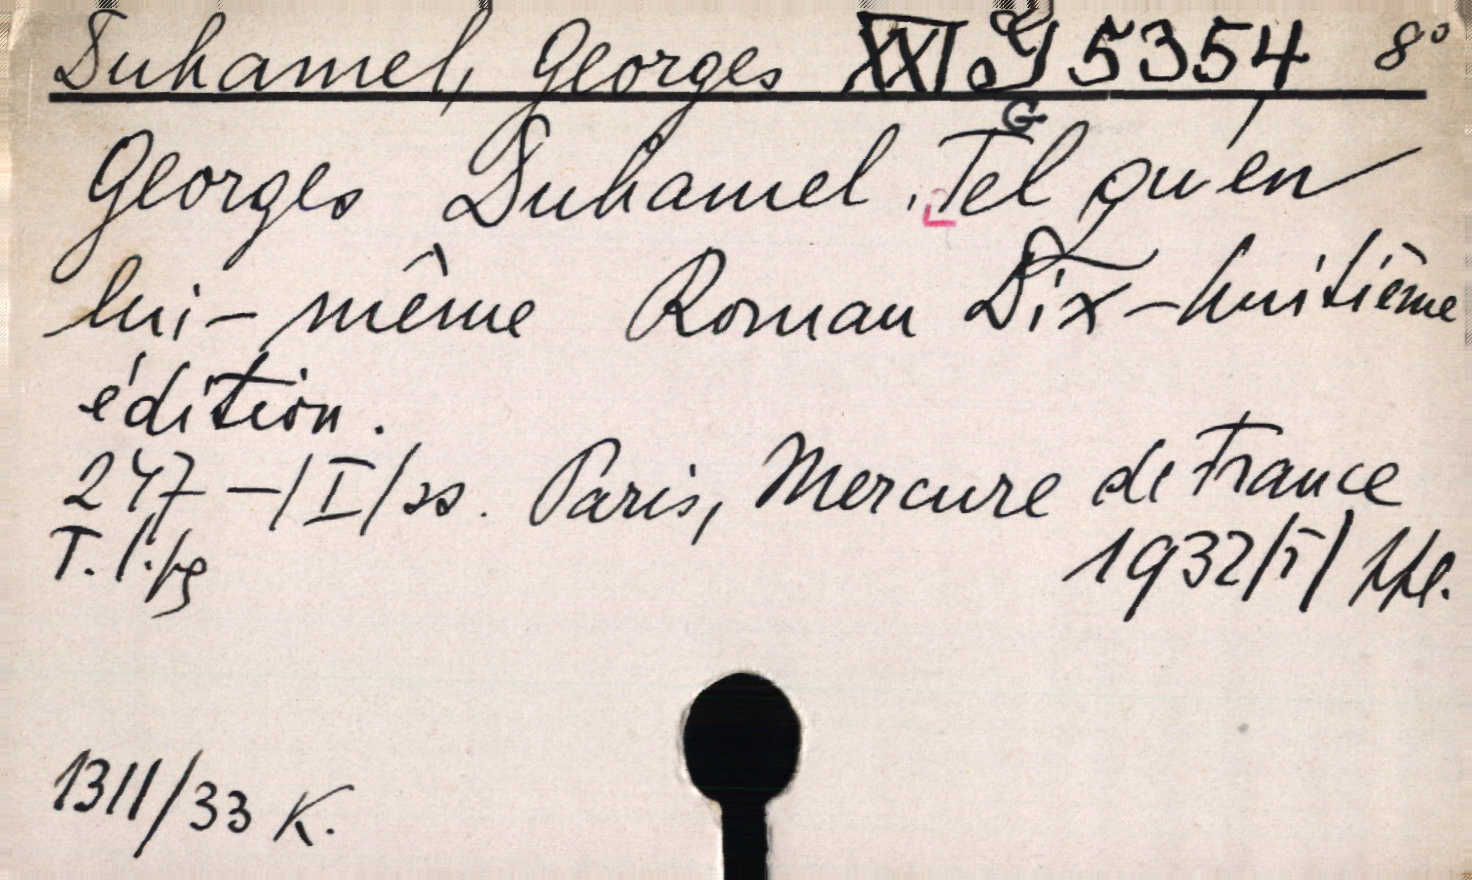 Duhamel, Georges XXI G 5354 8°
G
Georges Duhamel. Tel qu'en
lui-même Roman Dix-huitième
édition.
247 -/I/ss. Paris, Mercure de France
1932/I/
1311/33 K.